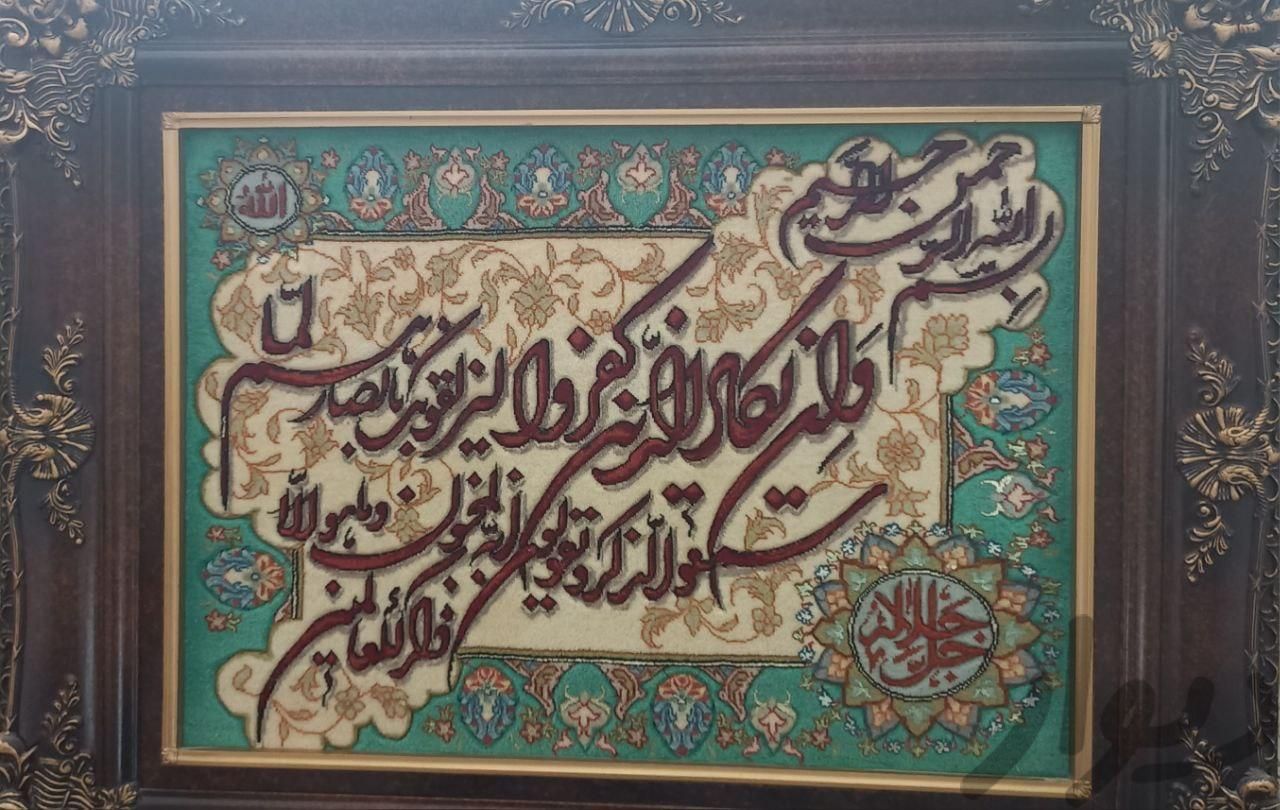 بسم الله الرحمن الرحیم
وَاِن یکاد الذین کفروا لیزلقونک بابصارهم لمّا
سمعوا الذکر و یقولون انه لمجنون و ما هو الّا
ذکرٌ للعالمین
الله
جلّ جلاله
دیوار